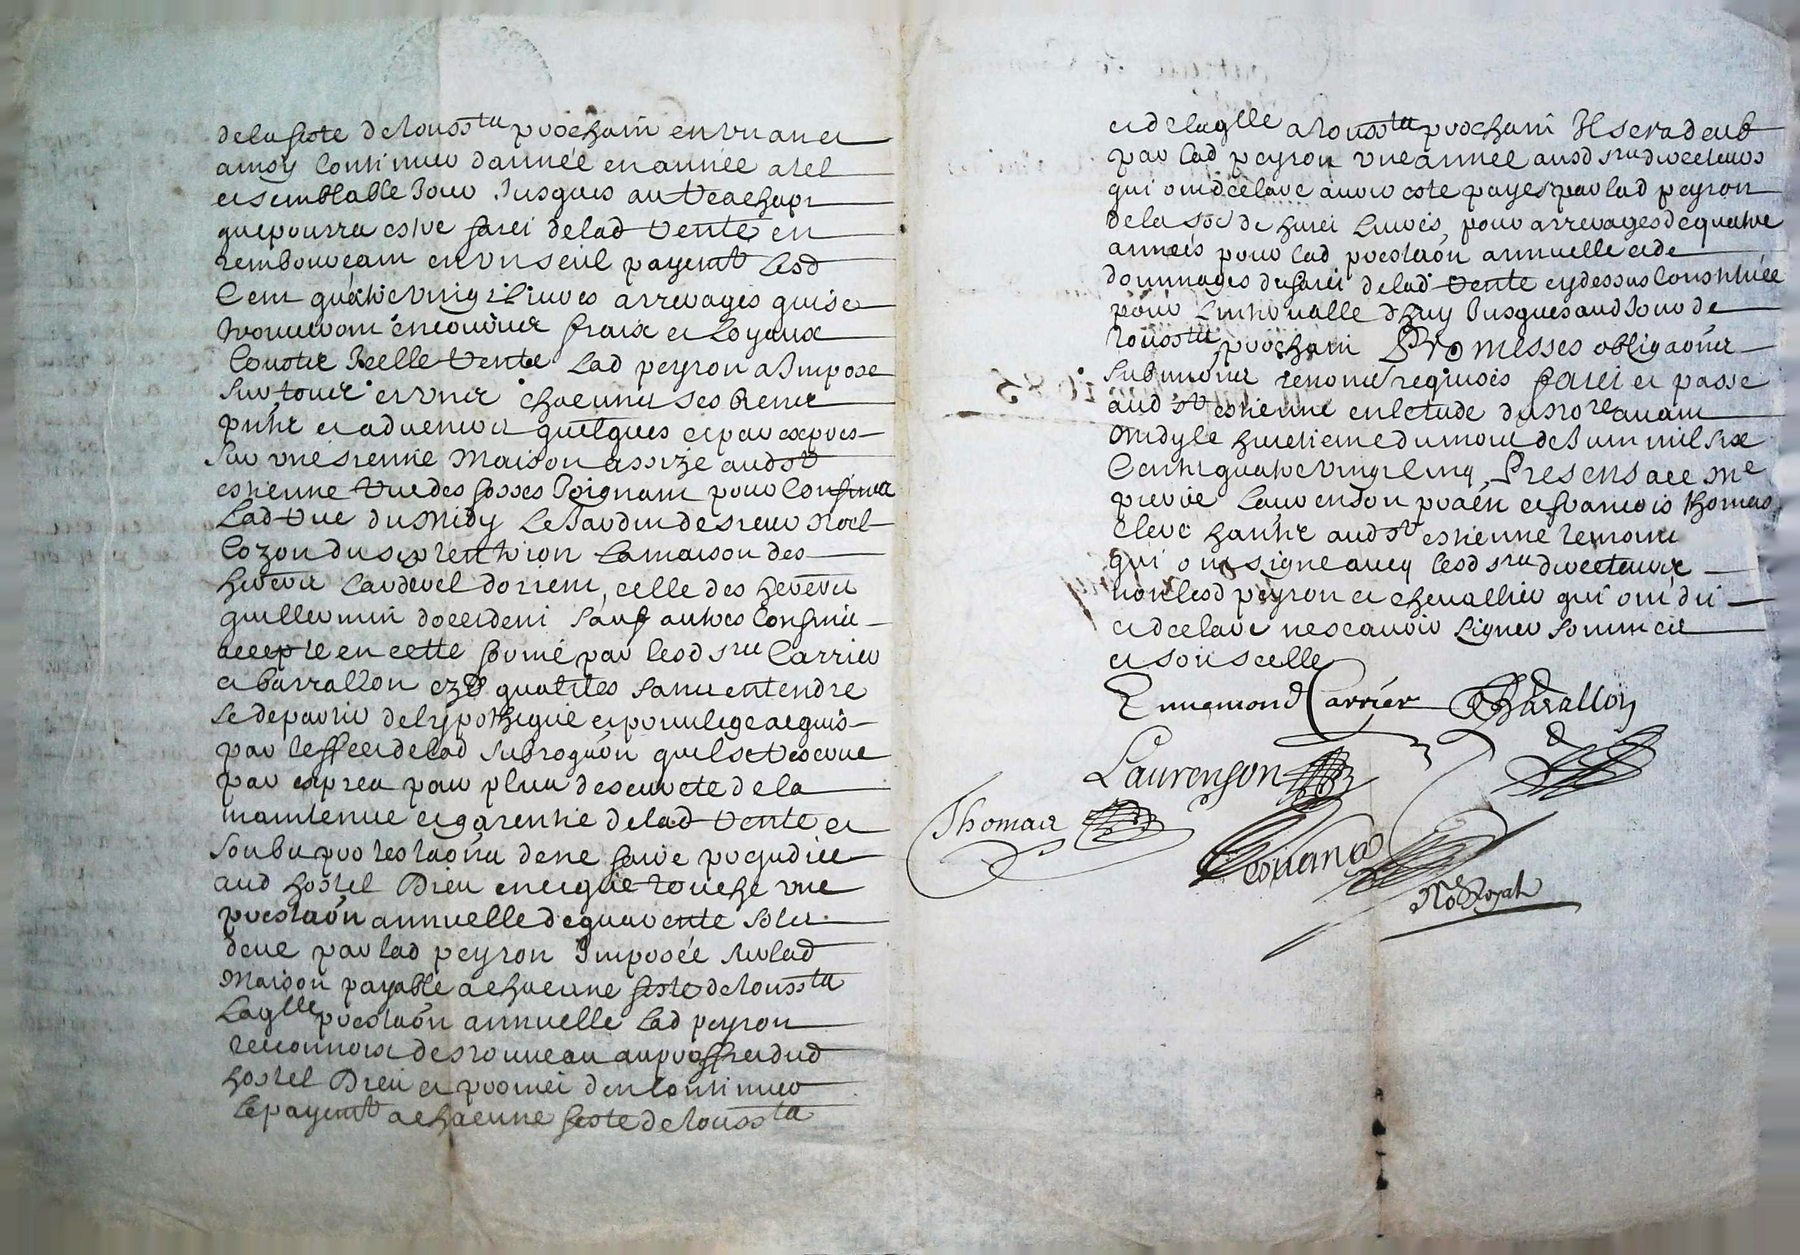 de la feste de toussts prochain en un an et
ainsy continuer d'année en année a tel
et semblable jour jusques au reachapt
que pourra estre faict de lad rente en
rembourceant en un seul payemt lesd
cent quatre vingt livres arrerages qui se
trouveront encourus fraix et loyaux
coustz icelle rente lad peyron a imposé
sur tous et uns chacuns ses biens
pntz et advenir quelques et par expres
sur une sienne maison assize aud st
estienne rue des fosses joignant pour confins
lad rue du midy le jardin de sieur noel
cozon du septentrion la maison des
heretiers dorient, celle des heretiers
guillermin doccident sauf autres confins
accepte en cette forme par lesd srs Carrier
et barrallon ezd qualites sans entendre
se departir de lypotheque et privilege acquis
par leffect de lad subrogaon quils se reserve
par expres pour plus de seurete de la
maintenue et garentie de lad rente et
soubz protestaons de ne faire prejudice
aud hostel Dieu en ce que touche une
prestaon annuelle de quarente solz
deue par lad peyron imposée sur lad
maison payable a chacune feste de toussts
laqlle prestaon annuelle lad peyron
reconnoist de nouveau au proffict dud
hostel Dieu et promet den continuer
le payemt a chacune feste de toussts
et de laqlle a toussts prochain il sera deub
par lad peyron une année ausd srs directeurs
qui ont declaré avoir esté payes par lad peyron
de la so[e] de livres, pour arrerages de quatre
années pour lad prestaon annuelle et de
dommages de lad rente cy dessus constituée
pour lintervalle dhuy jusques aud jour de
toussts prochain Promesses obligaons
submons renons requises faict et passé
aud st estienne en letude du nore avant
midy le huictieme du mois de juin mil six
centz quatre vingt cinq Presens a ce me
pierre Laurenson praen et francois thomas
clerc hantz aud st estienne temoins
qui ont signe avecq lesd srs directeurs
non lesd peyron et chevallier qui ont dit
et declaré ne scavoir signer sommeés
et sois scellé
Ennemond Carrier Barallon
Laurenson
Thomas
Nore Royal